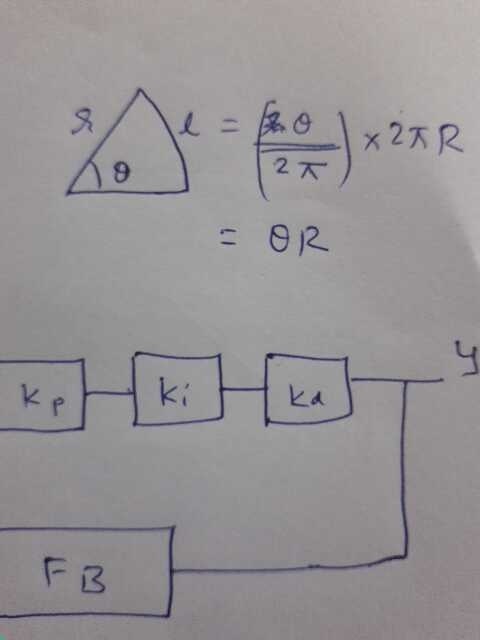 r l = (θ / 2π) × 2πR
θ
= θR
y
Kp Ki Kd
FB